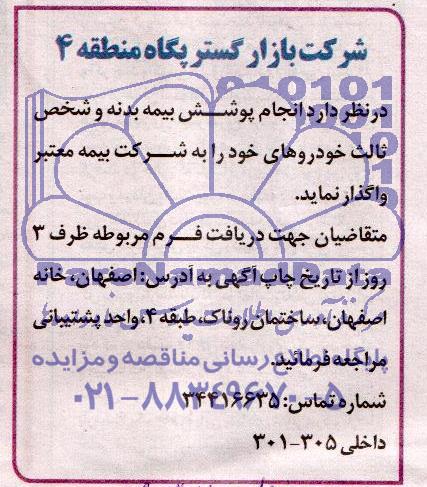 شرکت بازار گستر پگاه منطقه ۴
درنظر دارد انجام پوشش بیمه بدنه و شخص
ثالث خودروهای خود را به شرکت بیمه معتبر
واگذار نماید.
متقاضیان جهت دریافت فرم مربوطه ظرف ۳
روز از تاریخ چاپ آگهی به آدرس: اصفهان، خانه
اصفهان، ساختمان روناک، طبقه ۴، واحد پشتیبانی
مراجعه فرمائید.
پایگاه اطلاع رسانی مناقصه و مزایده
شماره تماس: ۳۴۴۱۶۶۳۵
۰۲۱-۸۸۳۴۹۶۷۰-۵
داخلی ۳۰۵-۳۰۱